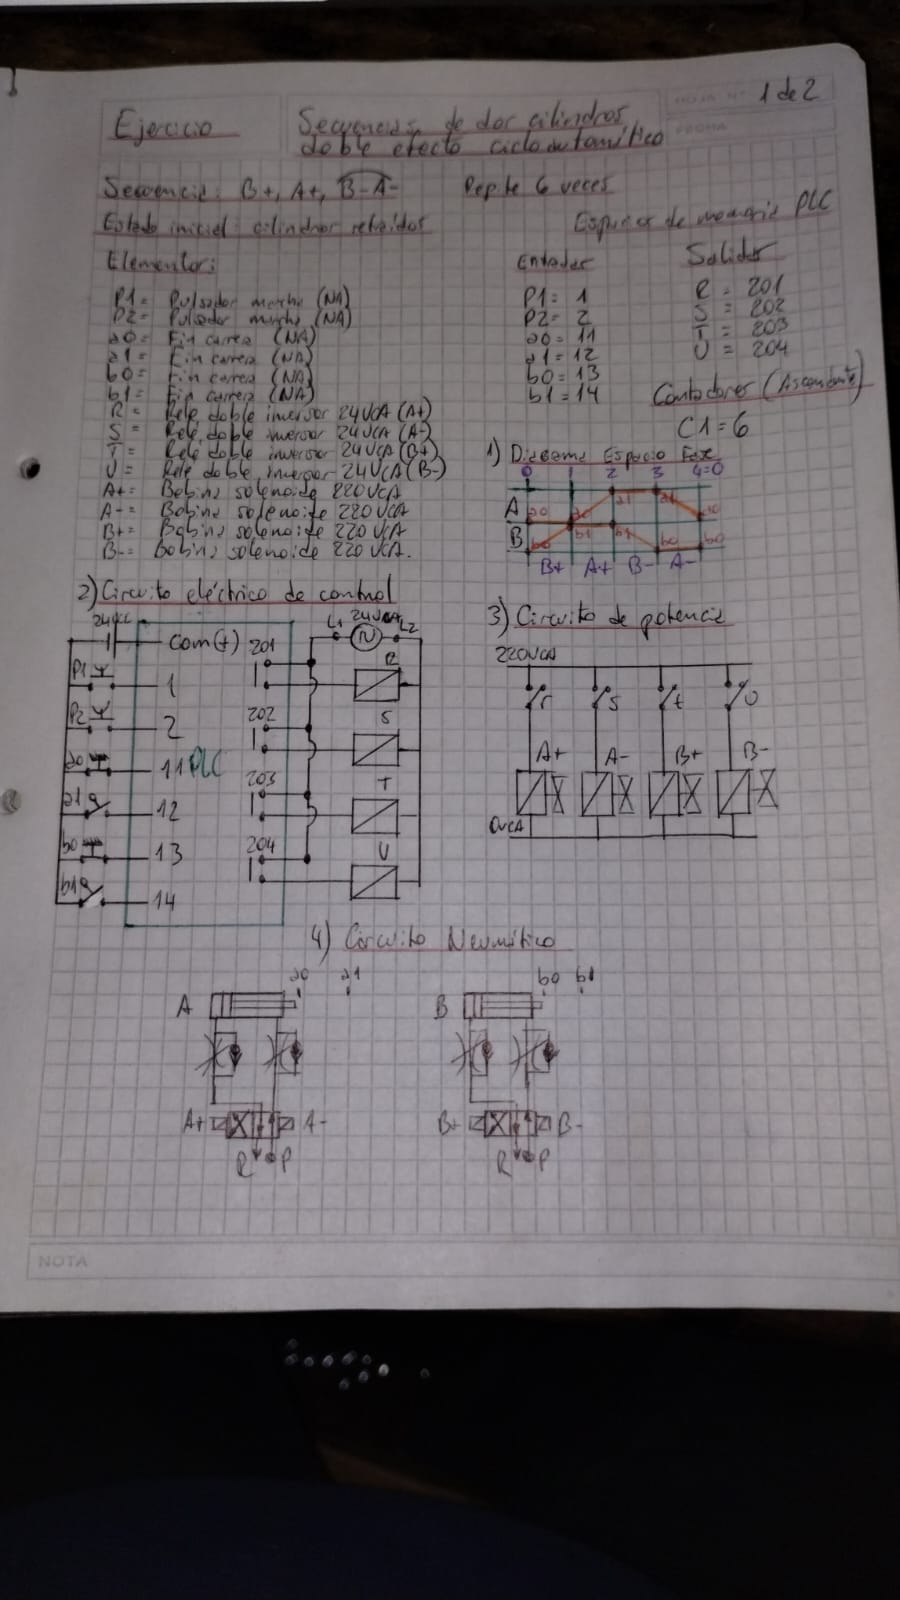 HOJA N° 1 de 2
FECHA
Ejercicio
Secuencia de dos cilindros
doble efecto ciclo automático
Secuencia: B+, A+, B-A-
Repite 6 veces
Estado inicial: cilindros retraidos
Espacios de memoria PLC
Elementos:
Entradas
Salidas
P1= Pulsador marcha (NA)
P2= Pulsador marcha (NA)
a0= Fin carrera (NA)
a1= Fin carrera (NA)
b0= Fin carrera (NA)
b1= Fin carrera (NA)
R= Relé doble inversor 24VCA (A+)
S= Relé doble inversor 24VCA (A-)
T= Relé doble inversor 24VCA (B+)
U= Relé doble inversor 24VCA (B-)
A+= Bobina solenoide 220VCA
A-= Bobina solenoide 220VCA
B+= Bobina solenoide 220VCA
B-= Bobina solenoide 220VCA.
P1= 1
P2= 2
a0= 11
a1= 12
b0= 13
b1= 14
R = 201
S = 202
T = 203
U = 204
Contadores (Ascendente)
C1=6
1) Diagrama Espacio Fase
0 1 2 3 4=0
A a0 a0 a1 a1 a0
B b0 b1 b1 b0 b0
B+ A+ B- A-
2) Circuito eléctrico de control
24Vcc
Com(+)
201
L1
24VCA
N
L2
P1
1
R
P2
2
202
S
a0
11
PLC
a1
12
203
T
b0
13
204
U
b1
14
3) Circuito de potencia
220VCA
r s t U
A+ A- B+ B-
0VCA
4) Circuito Neumático
a0 a1
b0 b1
A
B
A+ A-
B+ B-
R P
R P
NOTA